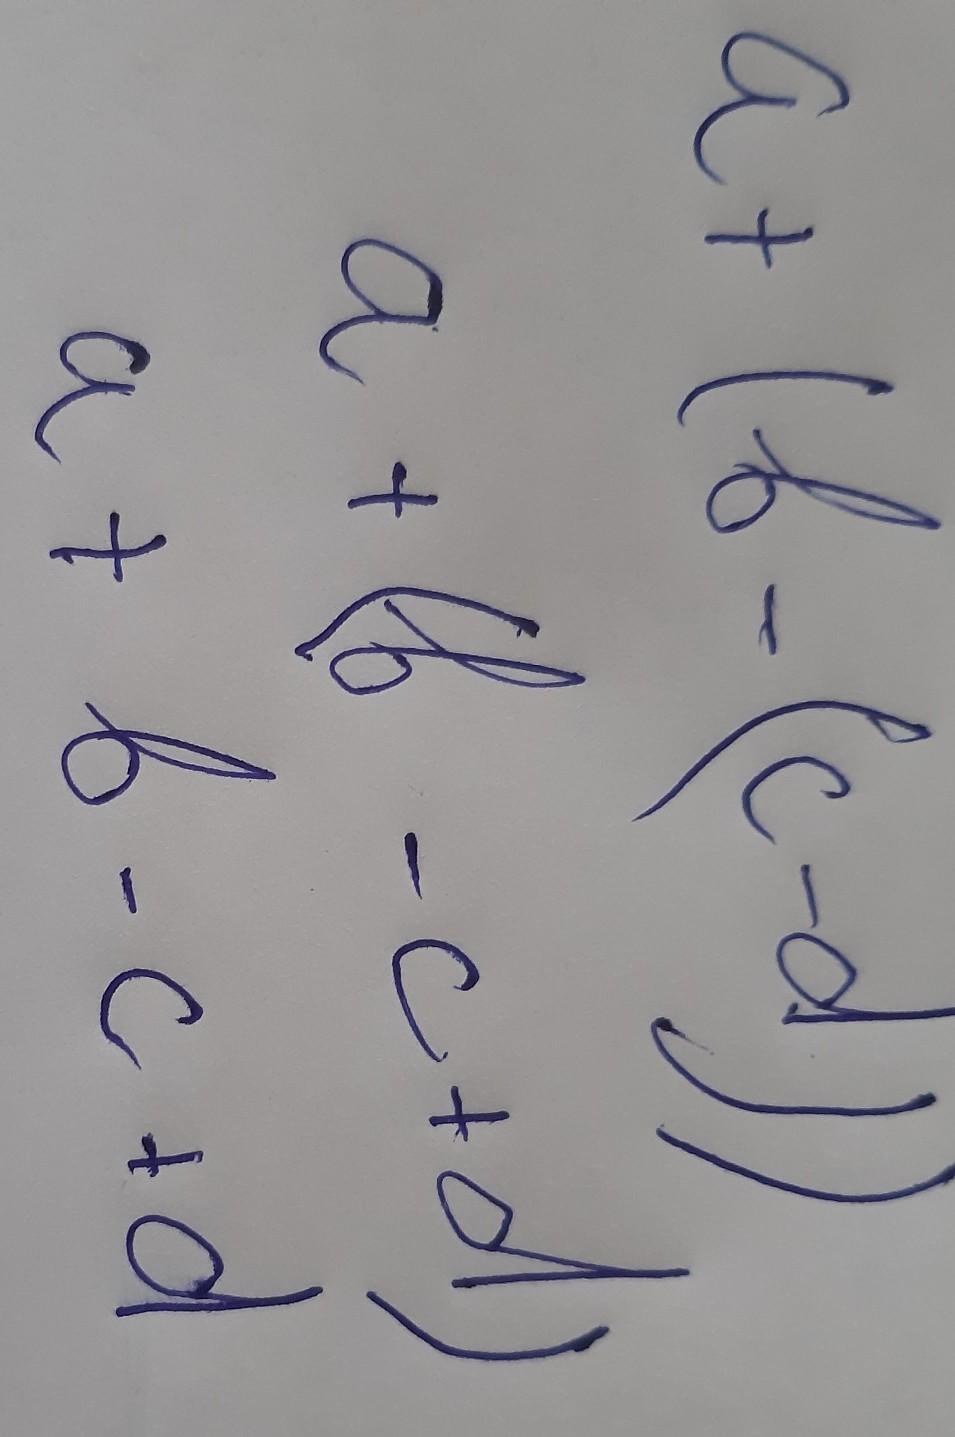 a + (b - (c - d))
a + (b - c + d)
a + b - c + d